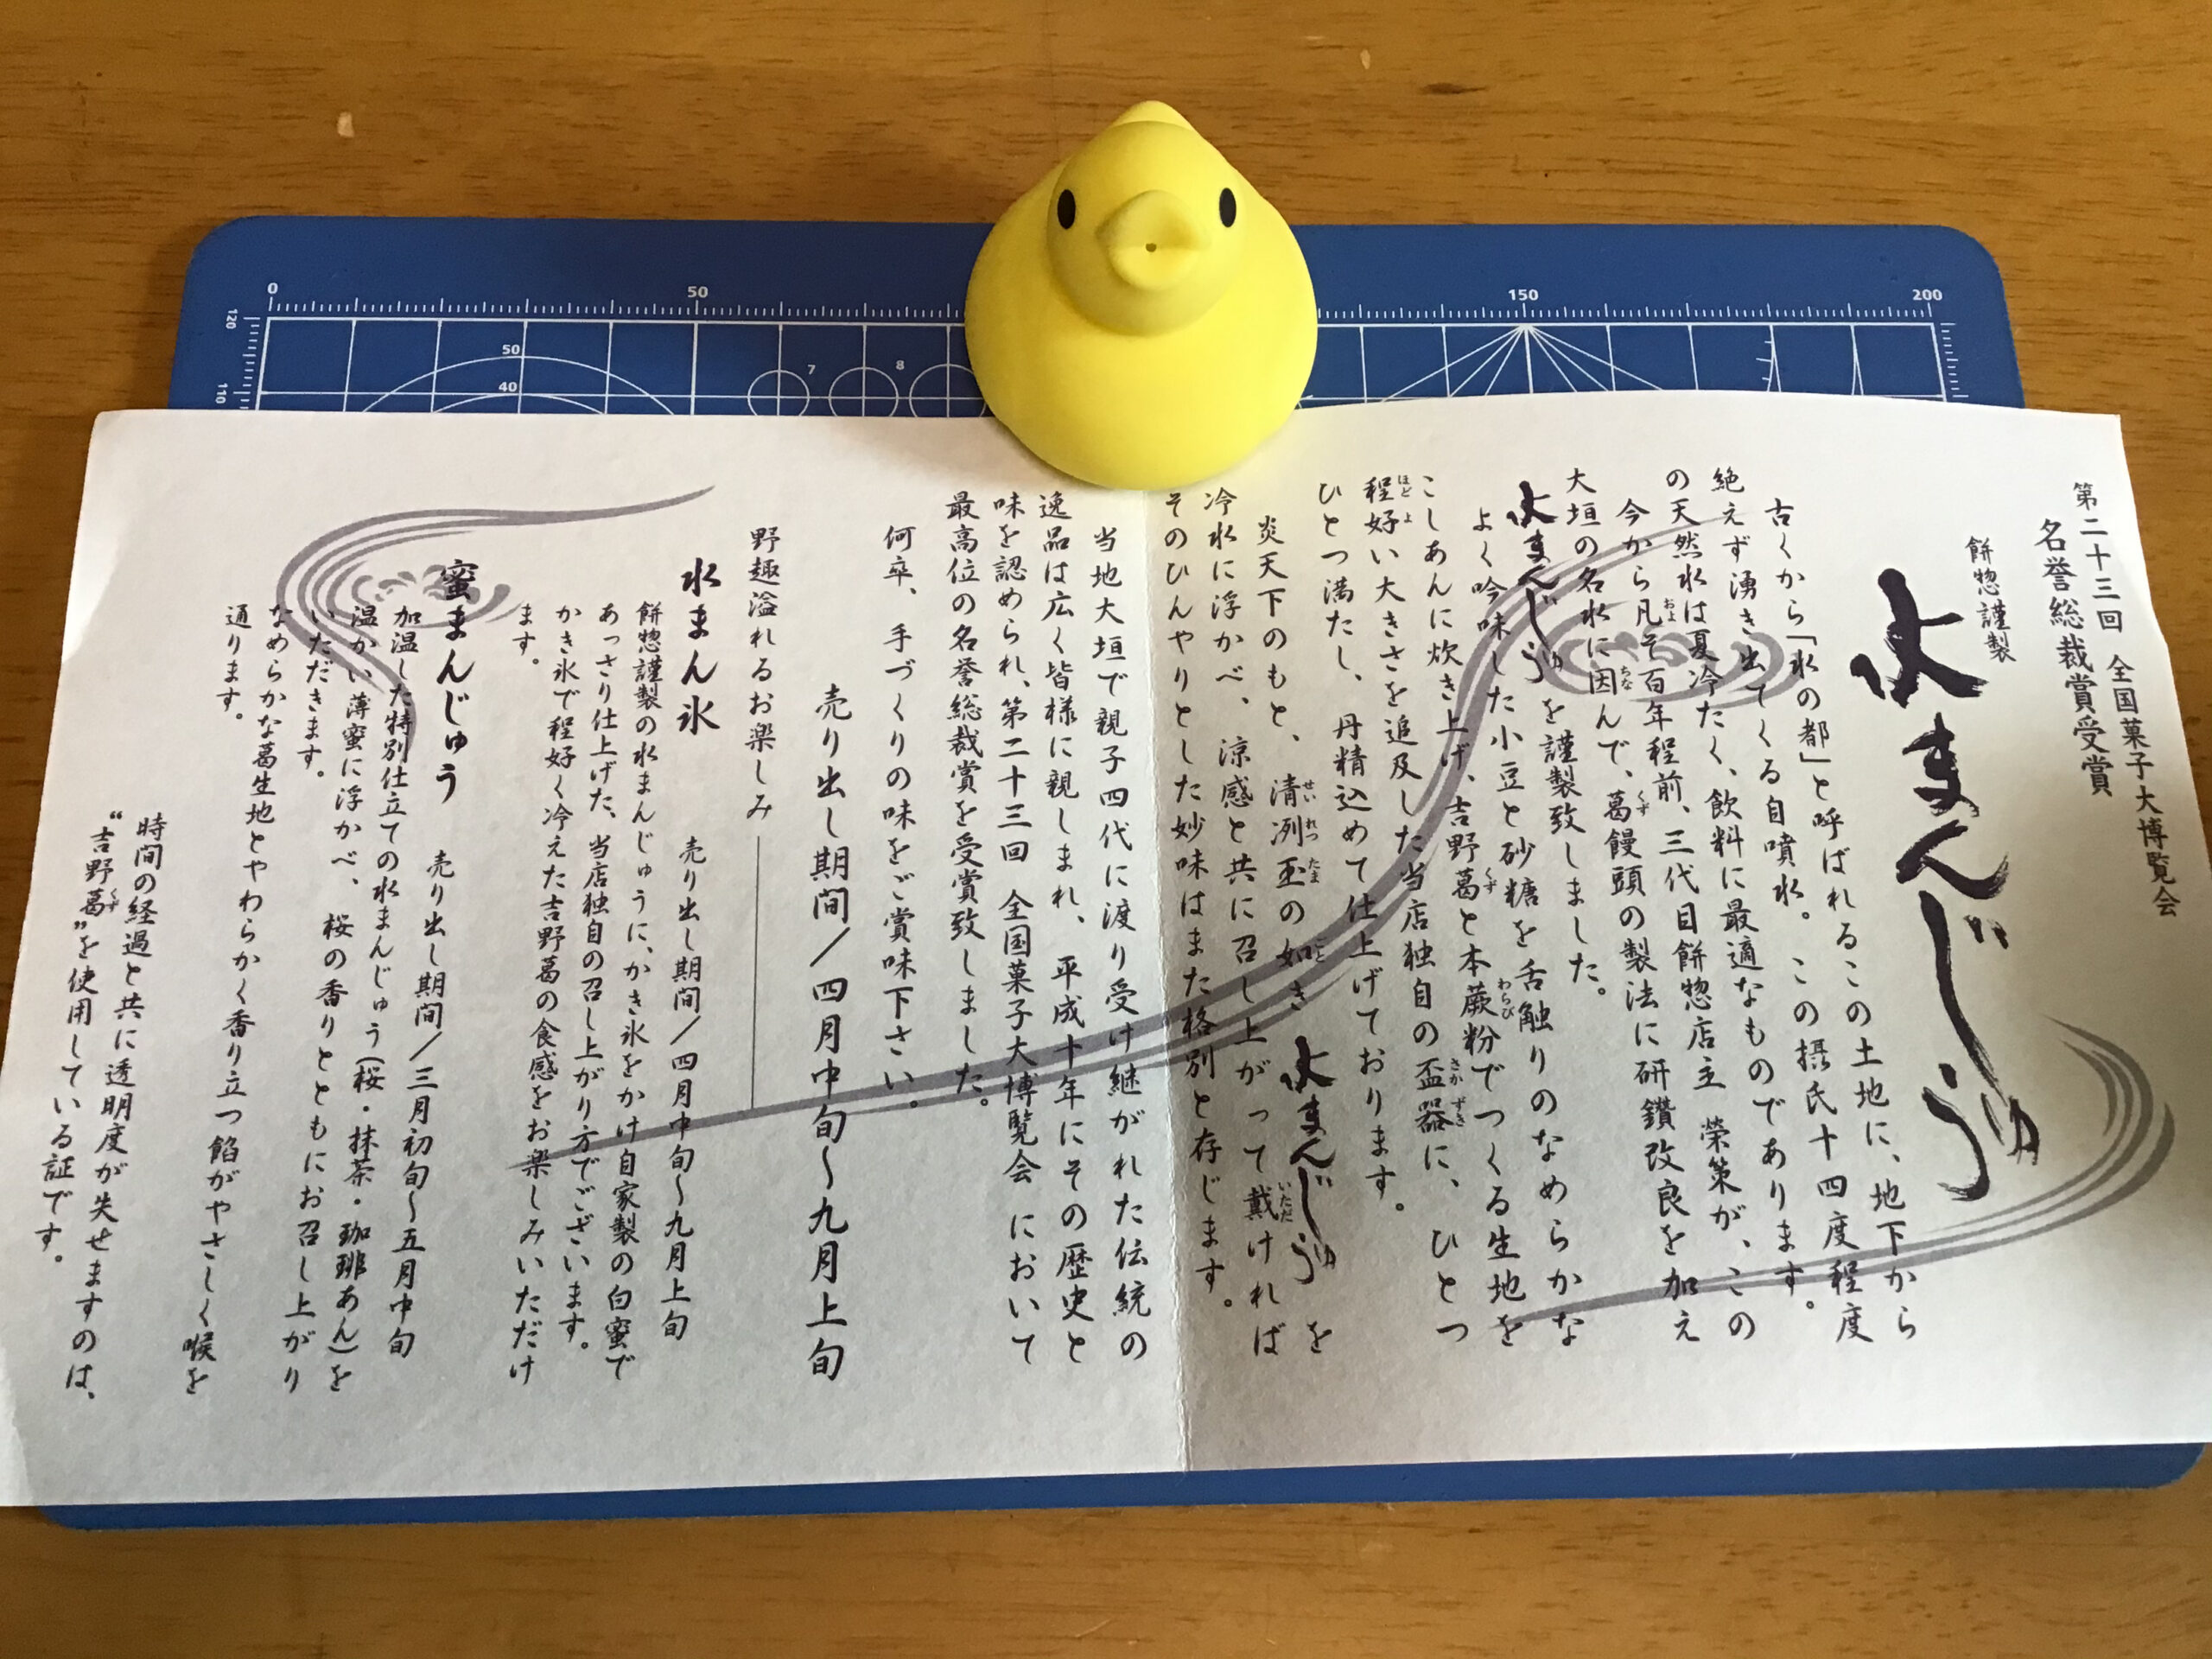 第二十三回 全国菓子大博覧会
名誉総裁賞受賞
餅惣謹製
水まんじゅう
古くから「水の都」と呼ばれるこの土地に、地下から
絶えず湧き出てくる自噴水。この摂氏十四度程度
の天然水は夏冷たく、飲料に最適なものであります。
今から凡そ百年程前、三代目餅惣店主 榮策が、この
大垣の名水に因んで、葛饅頭の製法に研鑽改良を加え
水まんじゅうを謹製致しました。
よく吟味した小豆と砂糖を舌触りのなめらかな
こしあんに炊き上げ、吉野葛と本蕨粉でつくる生地を
程好い大きさを追及した当店独自の盃器に、ひとつ
ひとつ満たし、丹精込めて仕上げております。
炎天下のもと、清冽玉の如き 水まんじゅうを
冷水に浮かべ、涼感と共に召し上がって戴ければ
そのひんやりとした妙味はまた格別と存じます。
当地大垣で親子四代に渡り受け継がれた伝統の
逸品は広く皆様に親しまれ、平成十年にその歴史と
味を認められ、第二十三回 全国菓子大博覧会 において
最高位の名誉総裁賞を受賞致しました。
何卒、手づくりの味をご賞味下さい。
売り出し期間/四月中旬〜九月上旬
野趣溢れるお楽しみ
水まん氷 売り出し期間/四月中旬〜九月上旬
餅惣謹製の水まんじゅうに、かき氷をかけ自家製の白蜜で
あっさり仕上げた、当店独自の召し上がり方でございます。
かき氷で程好く冷えた吉野葛の食感をお楽しみいただけ
ます。
蜜まんじゅう 売り出し期間/三月初旬〜五月中旬
加温した特別仕立ての水まんじゅう(桜・抹茶・珈琲あん)を
温かい薄蜜に浮かべ、桜の香りとともにお召し上がり
いただきます。
なめらかな葛生地とやわらかく香り立つ餡がやさしく喉を
通ります。
時間の経過と共に透明度が失せますのは、
“吉野葛”を使用している証です。
0
50
150
200
120
110
50
40
7
8